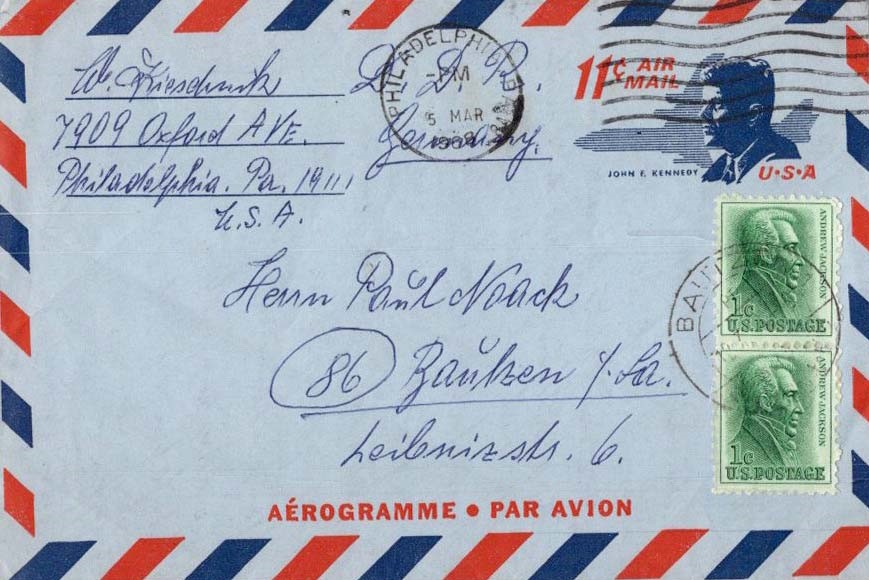 W. Kieschnik
7909 Oxford AVE.
Philadelphia. Pa. 19111
U.S.A.
D. D. R.
Germany.
PHILADELPHIA
PM
5 MAR
11¢ AIR
MAIL
JOHN F. KENNEDY
U·S·A
Herrn Paul Noack
86 Bautzen /Sa.
Leibnizstr. 6.
ANDREW JACKSON
1¢
U.S. POSTAGE
BAUTZEN
ANDREW JACKSON
1¢
U.S. POSTAGE
AÉROGRAMME • PAR AVION